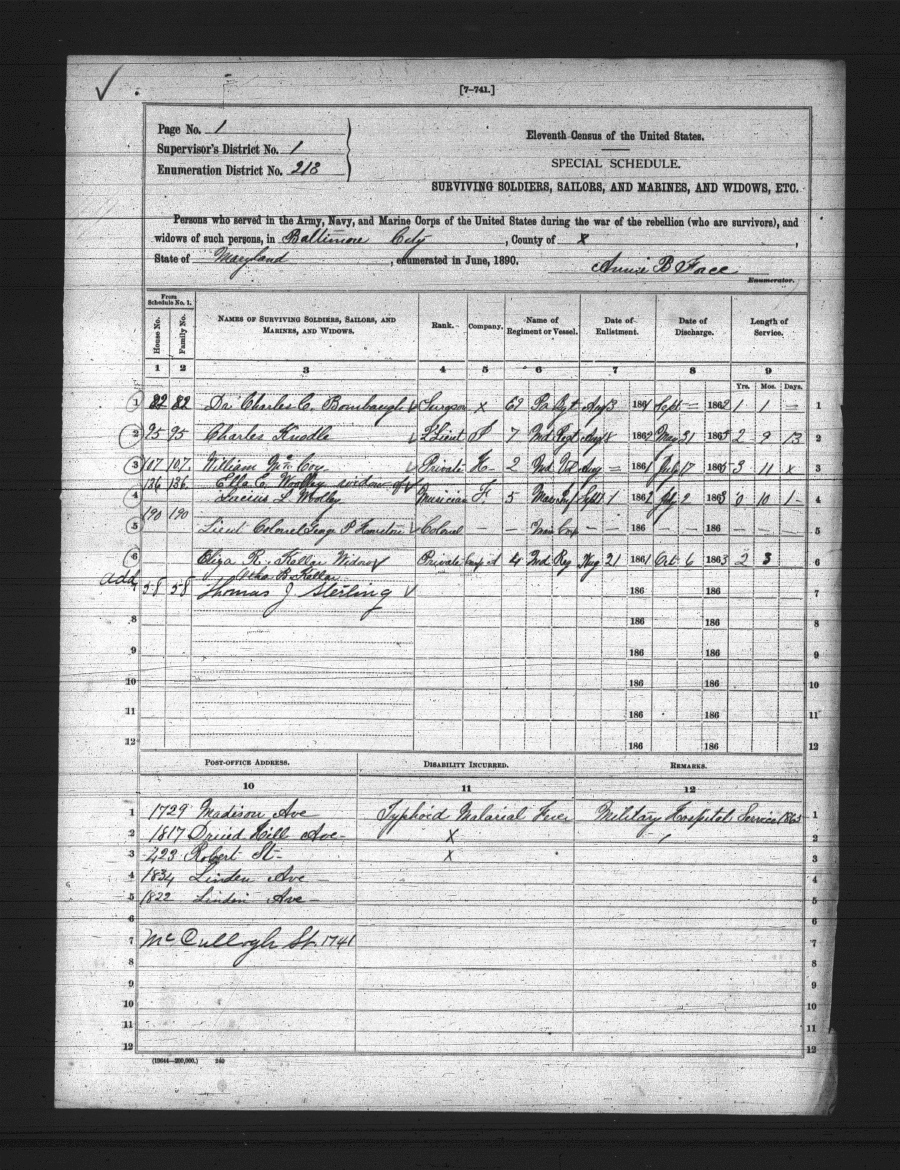 ✓
[7-741.]
Page No. 1
Supervisor's District No. 1
Enumeration District No. 213
Eleventh Census of the United States.
SPECIAL SCHEDULE.
SURVIVING SOLDIERS, SAILORS, AND MARINES, AND WIDOWS, ETC.
Persons who served in the Army, Navy, and Marine Corps of the United States during the war of the rebellion (who are survivors), and
widows of such persons, in Baltimore City, County of x,
State of Maryland, enumerated in June, 1890.
Annie B Face
Enumerator.
From Schedule No. 1.
House No. Family No. NAMES OF SURVIVING SOLDIERS, SAILORS, AND MARINES, AND WIDOWS. Rank. Company. Name of Regiment or Vessel. Date of Enlistment. Date of Discharge. Length of Service.
1 2 3 4 5 6 7 8 9
Yrs. Mos. Days.
1 82 82 Dr Charles C. Bombaugh Surgeon x 69 Pa Rgt Aug 3 1861 Sept — 1862 1 1 — 1
2 95 95 Charles Knodle Lieut 7 Md Regt Aug 1862 May 31 1865 2 9 13 2
3 107 107 William McCoy Private 2 Md Aug — 1861 July 17 1865 3 11 x 3
136 136 Ella C. Woolley widow of
4 Lucius L Wolley Musician F 5 Sept 1 1862 July 2 1863 0 10 1 4
190 190
5 Lieut Colonel George P Colonel — — Corp — 186 — 186 — 5
6 Eliza R. Kellar Widow Private Comp A 4 Md Reg Aug 21 1861 Oct 6 1863 2 3 6
add
B Kellar
7 58 58 Thomas J Sterling 186 186 7
8 186 186 8
9 186 186 9
10 186 186 10
11 186 186 11
12 186 186 12
POST-OFFICE ADDRESS. DISABILITY INCURRED. REMARKS.
10 11 12
1 1729 Madison Ave Typhoid Malarial Fever Military Hospital Service 1863 1
2 1817 Druid Hill Ave x 2
3 423 Robert St x 3
4 1834 Linden Ave 4
5 1822 Linden Ave 5
6 6
7 McCullogh St. 1741 7
8 8
9 9
10 10
11 11
12 12
(19644—200,000.) 240